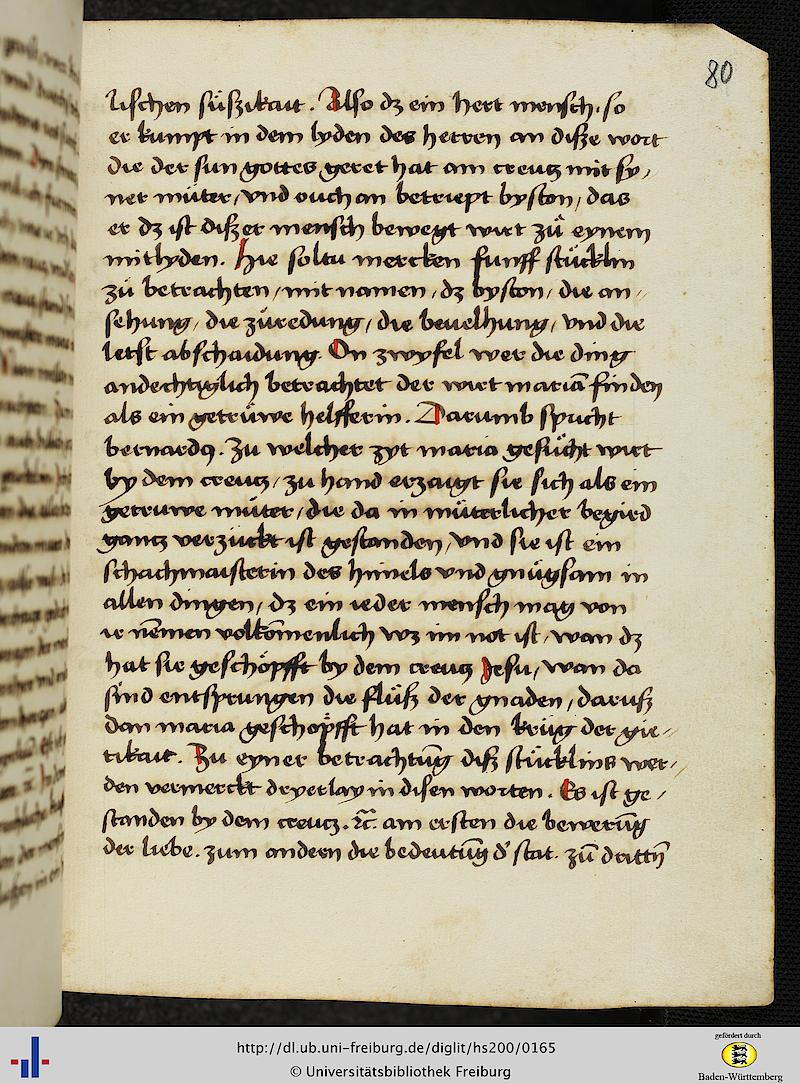 80
lischen süszikait. Also dz ein hert mensch. so
er kumpt in dem lyden des herren an disze wort
die der sun gottes geret hat am creutz mit sy,
ner müter, vnd ouch an betriept byston, das
er dz ist diszer mensch bewegt wirt zü eynem
mitlyden. Hie soltu mercken funff stücklin
zü betrachten, mit namen, dz byston, die an„
sehung, die züredung, die beuelhung, vnd die
letst abschaidung. On zwyfel wer die ding
andechtiglich betrachtet der wirt mariā finden
als ein getrüwe helfferin. Darumb spricht
bernardꝯ. Zu welcher zyt maria gesücht wirt
by dem creutz, zu hand erzaigt sie sich als ein
getruwe müter, die da in müterlicher begird
gantz verzückt ist gestanden, vnd sie ist ein
schachmaisterin des himels vnd gnügsam in
allen dingen, dz ein ieder mensch mag von
ir nēmen volkōmenlich wz im not ist, wan dz
hat sie geschöpfft by dem creutz Jesu, wan da
sind entsprungen die flüß der gnaden, daruß
dan maria geschöpfft hat in den krüg der gie„
tikait. Zu eyner betrachtūg diß stücklins wer„
den vermerckt dryerlay in disen worten. Es ist ge,
standen by dem creutz. ⁊c̄. am ersten die bewerūg
der liebe. zum andern die bedeutūg d' stat. zū drittē
http://dl.ub.uni-freiburg.de/diglit/hs200/0165
© Universitätsbibliothek Freiburg
gefördert durch
Baden-Württemberg